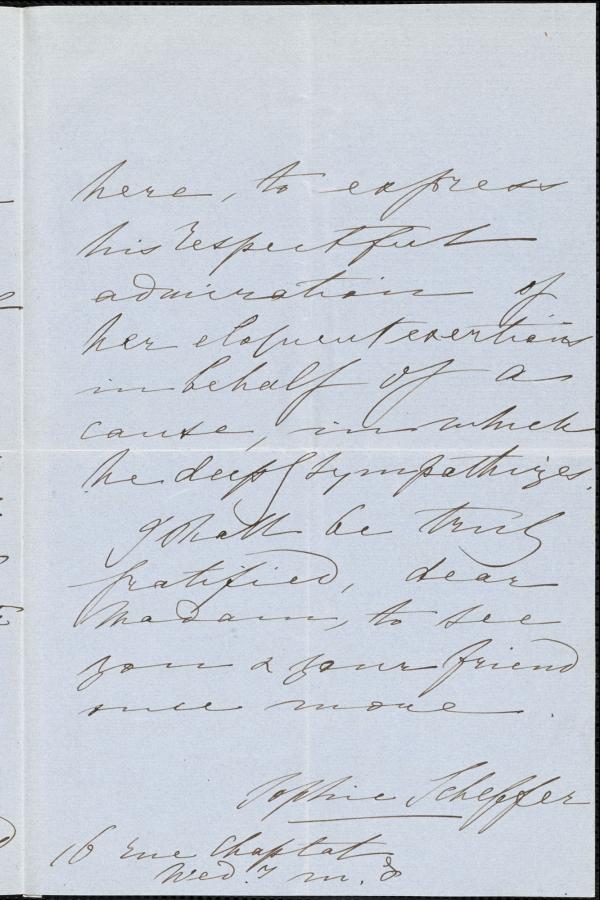 here, to express
his respectful
admiration of
her eloquent exertions
in behalf of a
cause, in which
he deeply sympathizes.
I shall be truly
gratified, dear
Madam, to see
you & your friend
once more.
Sophie Scheffer
16 rue Chaptal
Wed. 7 m.